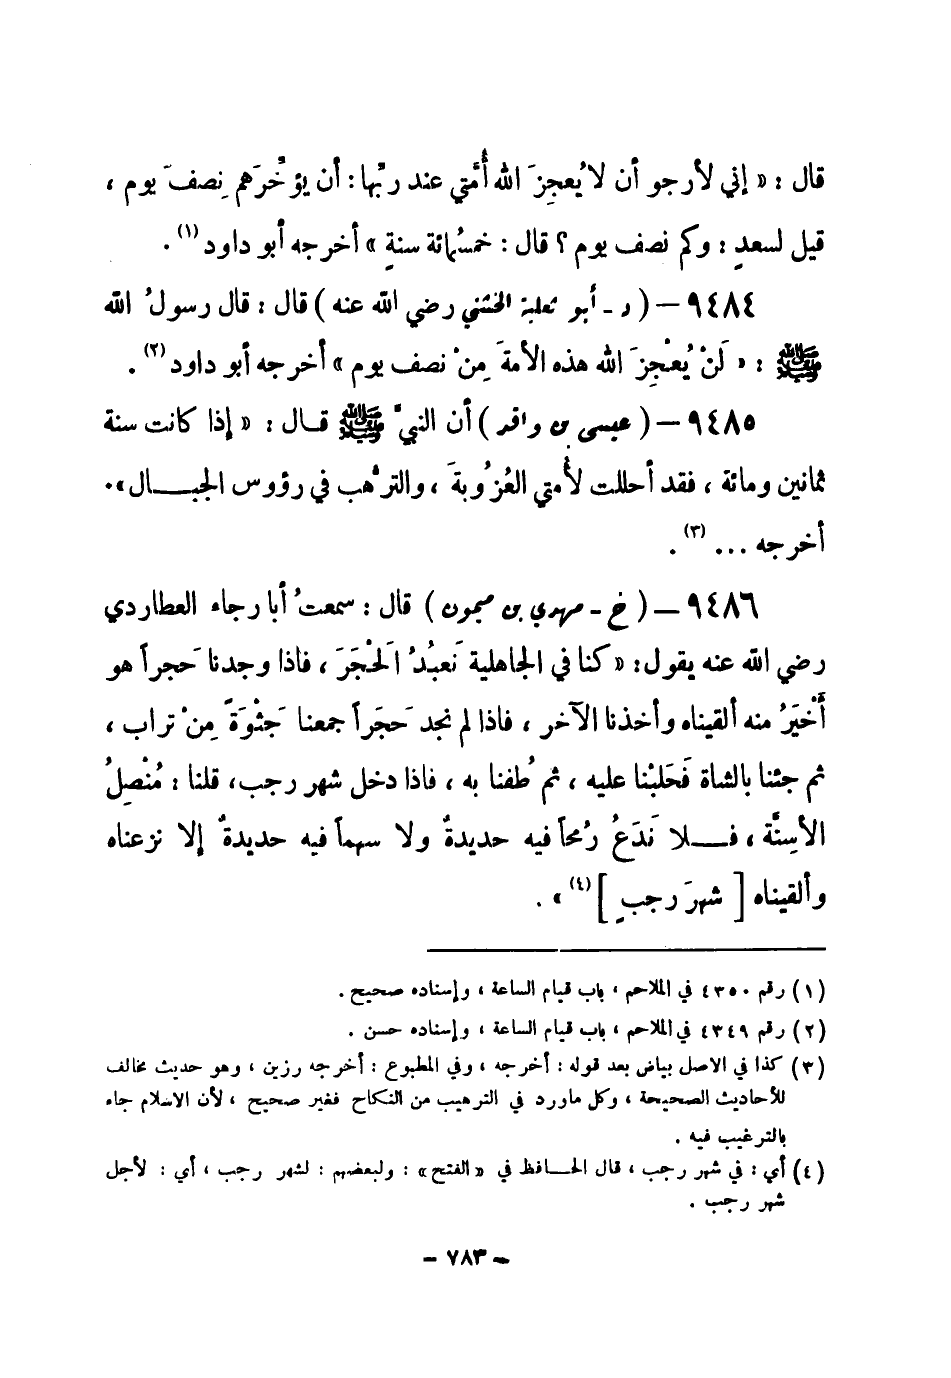 قال : « إني لأرجو أن لا يُعجِزَ الله أُمَّتي عند ربِّها : أن يؤخِّرَهم نِصفَ يوم ،
قيل لسعدٍ : وكم نصف يوم ؟ قال : خمسُمائة سنةٍ » أخرجه أبو داود (١) .
٩٤٨٤ – ( د - أبو ثعلبة الخشني رضي الله عنه ) قال : قال رسولُ الله
ﷺ : « لَنْ يُعْجِزَ الله هذه الأمةَ مِنْ نصف يوم » أخرجه أبو داود (٢) .
٩٤٨٥ – ( عيسى بن واقد ) أن النبيَّ ﷺ قال : « إذا كانت سنة
ثمانين ومائة ، فقد أحللت لأُمتي العُزُوبةَ ، والترهُّب في رؤوس الجبال » .
أخرجه ... (٣) .
٩٤٨٦ – ( خ - مهدي بن ميمون ) قال : سمعتُ أبا رجاء العطاردي
رضي الله عنه يقول : « كنا في الجاهلية نَعبُدُ الحْجَرَ ، فاذا وجدنا حَجراً هو
أَخْيَرُ منه ألقيناه وأخذنا الآخر ، فاذا لم نجد حَجَراً جمعنا جَثْوَةً مِنْ تراب ،
ثم جئنا بالشاة فَحَلَبْنا عليه ، ثم طُفنا به ، فاذا دخل شهر رجب ، قلنا : مُنْصِلُ
الأسِنَّة ، فلا نَدَعُ رُمحاً فيه حديدةٌ ولا سهماً فيه حديدةٌ إلا نزعناه
وألقيناه [ شهرَ رجبٍ ] (٤) » .
(١) رقم ٤٣٥٠ في الملاحم ، باب قيام الساعة ، وإسناده صحيح .
(٢) رقم ٤٣٤٩ في الملاحم ، باب قيام الساعة ، وإسناده حسن .
(٣) كذا في الاصل بياض بعد قوله : أخرجه ، وفي المطبوع : أخرجه رزين ، وهو حديث مخالف
للأحاديث الصحيحة ، وكل ماورد في الترهيب من النكاح فغير صحيح ، لأن الاسلام جاء
بالترغيب فيه .
(٤) أي : في شهر رجب ، قال الحافظ في « الفتح » : ولبعضهم : لشهر رجب ، أي : لأجل
شهر رجب .
– ٧٨٣ –